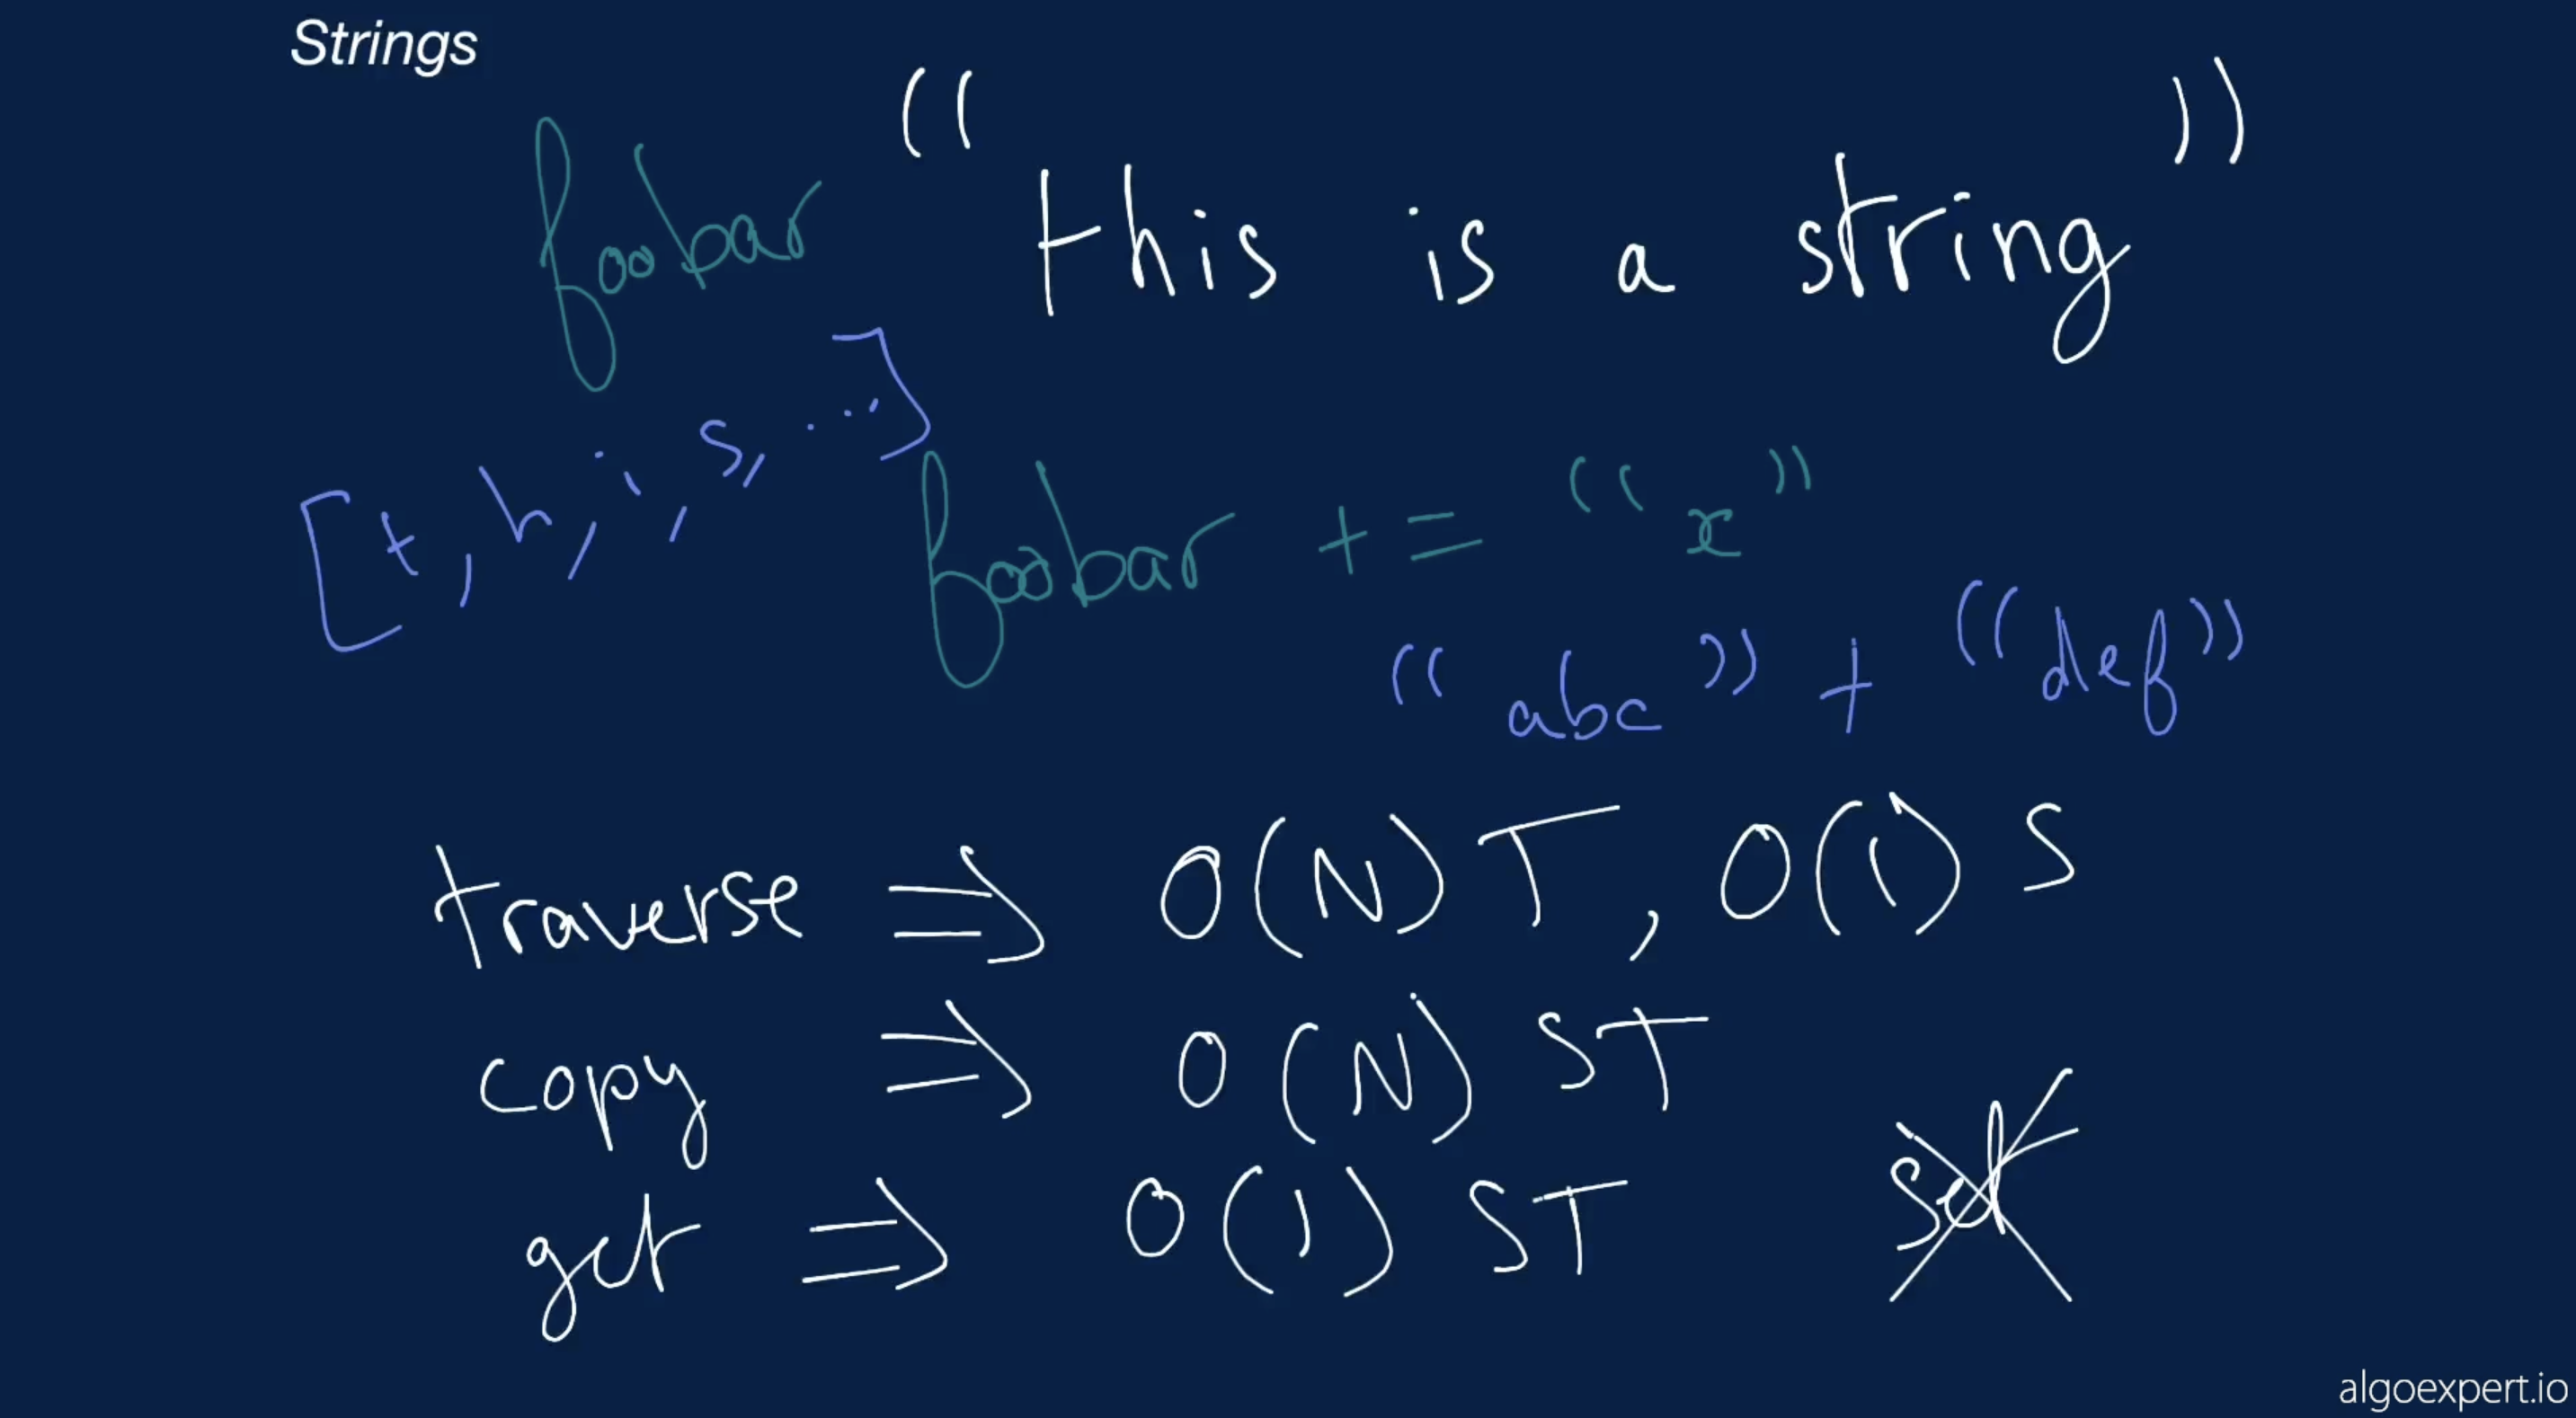 Strings
foobar "this is a string"
[t, h, i, s, ...]
foobar += "x"
"abc" + "def"
traverse ⇒ O(N) T, O(1) S
copy ⇒ O(N) ST
get ⇒ O(1) ST
set
algoexpert.io